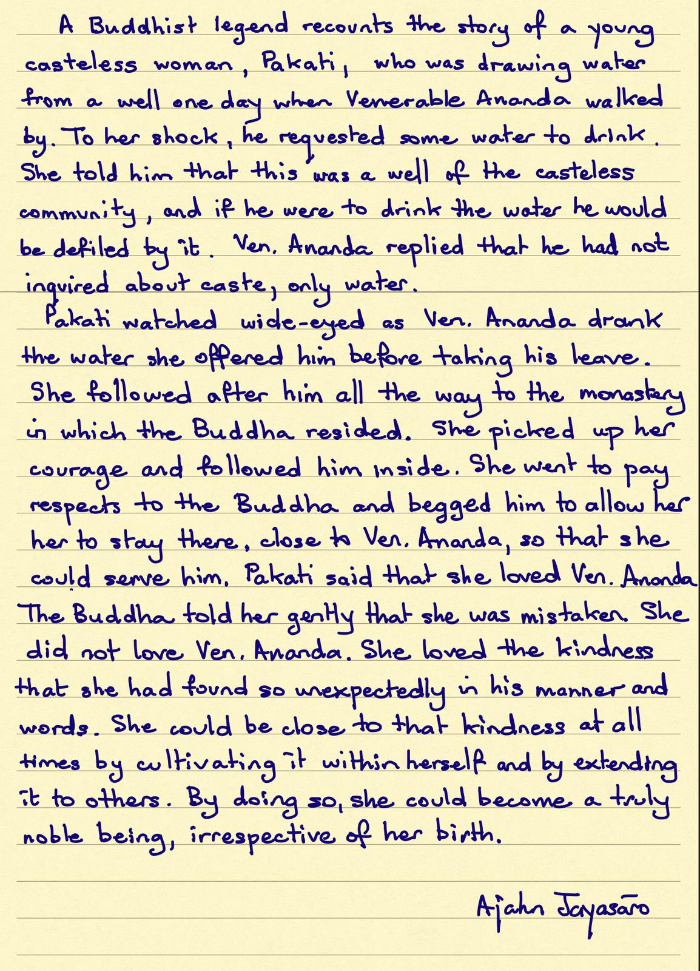 A Buddhist legend recounts the story of a young
casteless woman, Pakati, who was drawing water
from a well one day when Venerable Ananda walked
by. To her shock, he requested some water to drink.
She told him that this was a well of the casteless
community, and if he were to drink the water he would
be defiled by it. Ven. Ananda replied that he had not
inquired about caste, only water.
Pakati watched wide-eyed as Ven. Ananda drank
the water she offered him before taking his leave.
She followed after him all the way to the monastery
in which the Buddha resided. She picked up her
courage and followed him inside. She went to pay
respects to the Buddha and begged him to allow her
her to stay there, close to Ven. Ananda, so that she
could serve him. Pakati said that she loved Ven. Ananda
The Buddha told her gently that she was mistaken. She
did not love Ven. Ananda. She loved the kindness
that she had found so unexpectedly in his manner and
words. She could be close to that kindness at all
times by cultivating it within herself and by extending
it to others. By doing so, she could become a truly
noble being, irrespective of her birth.
Ajahn Jayasāro